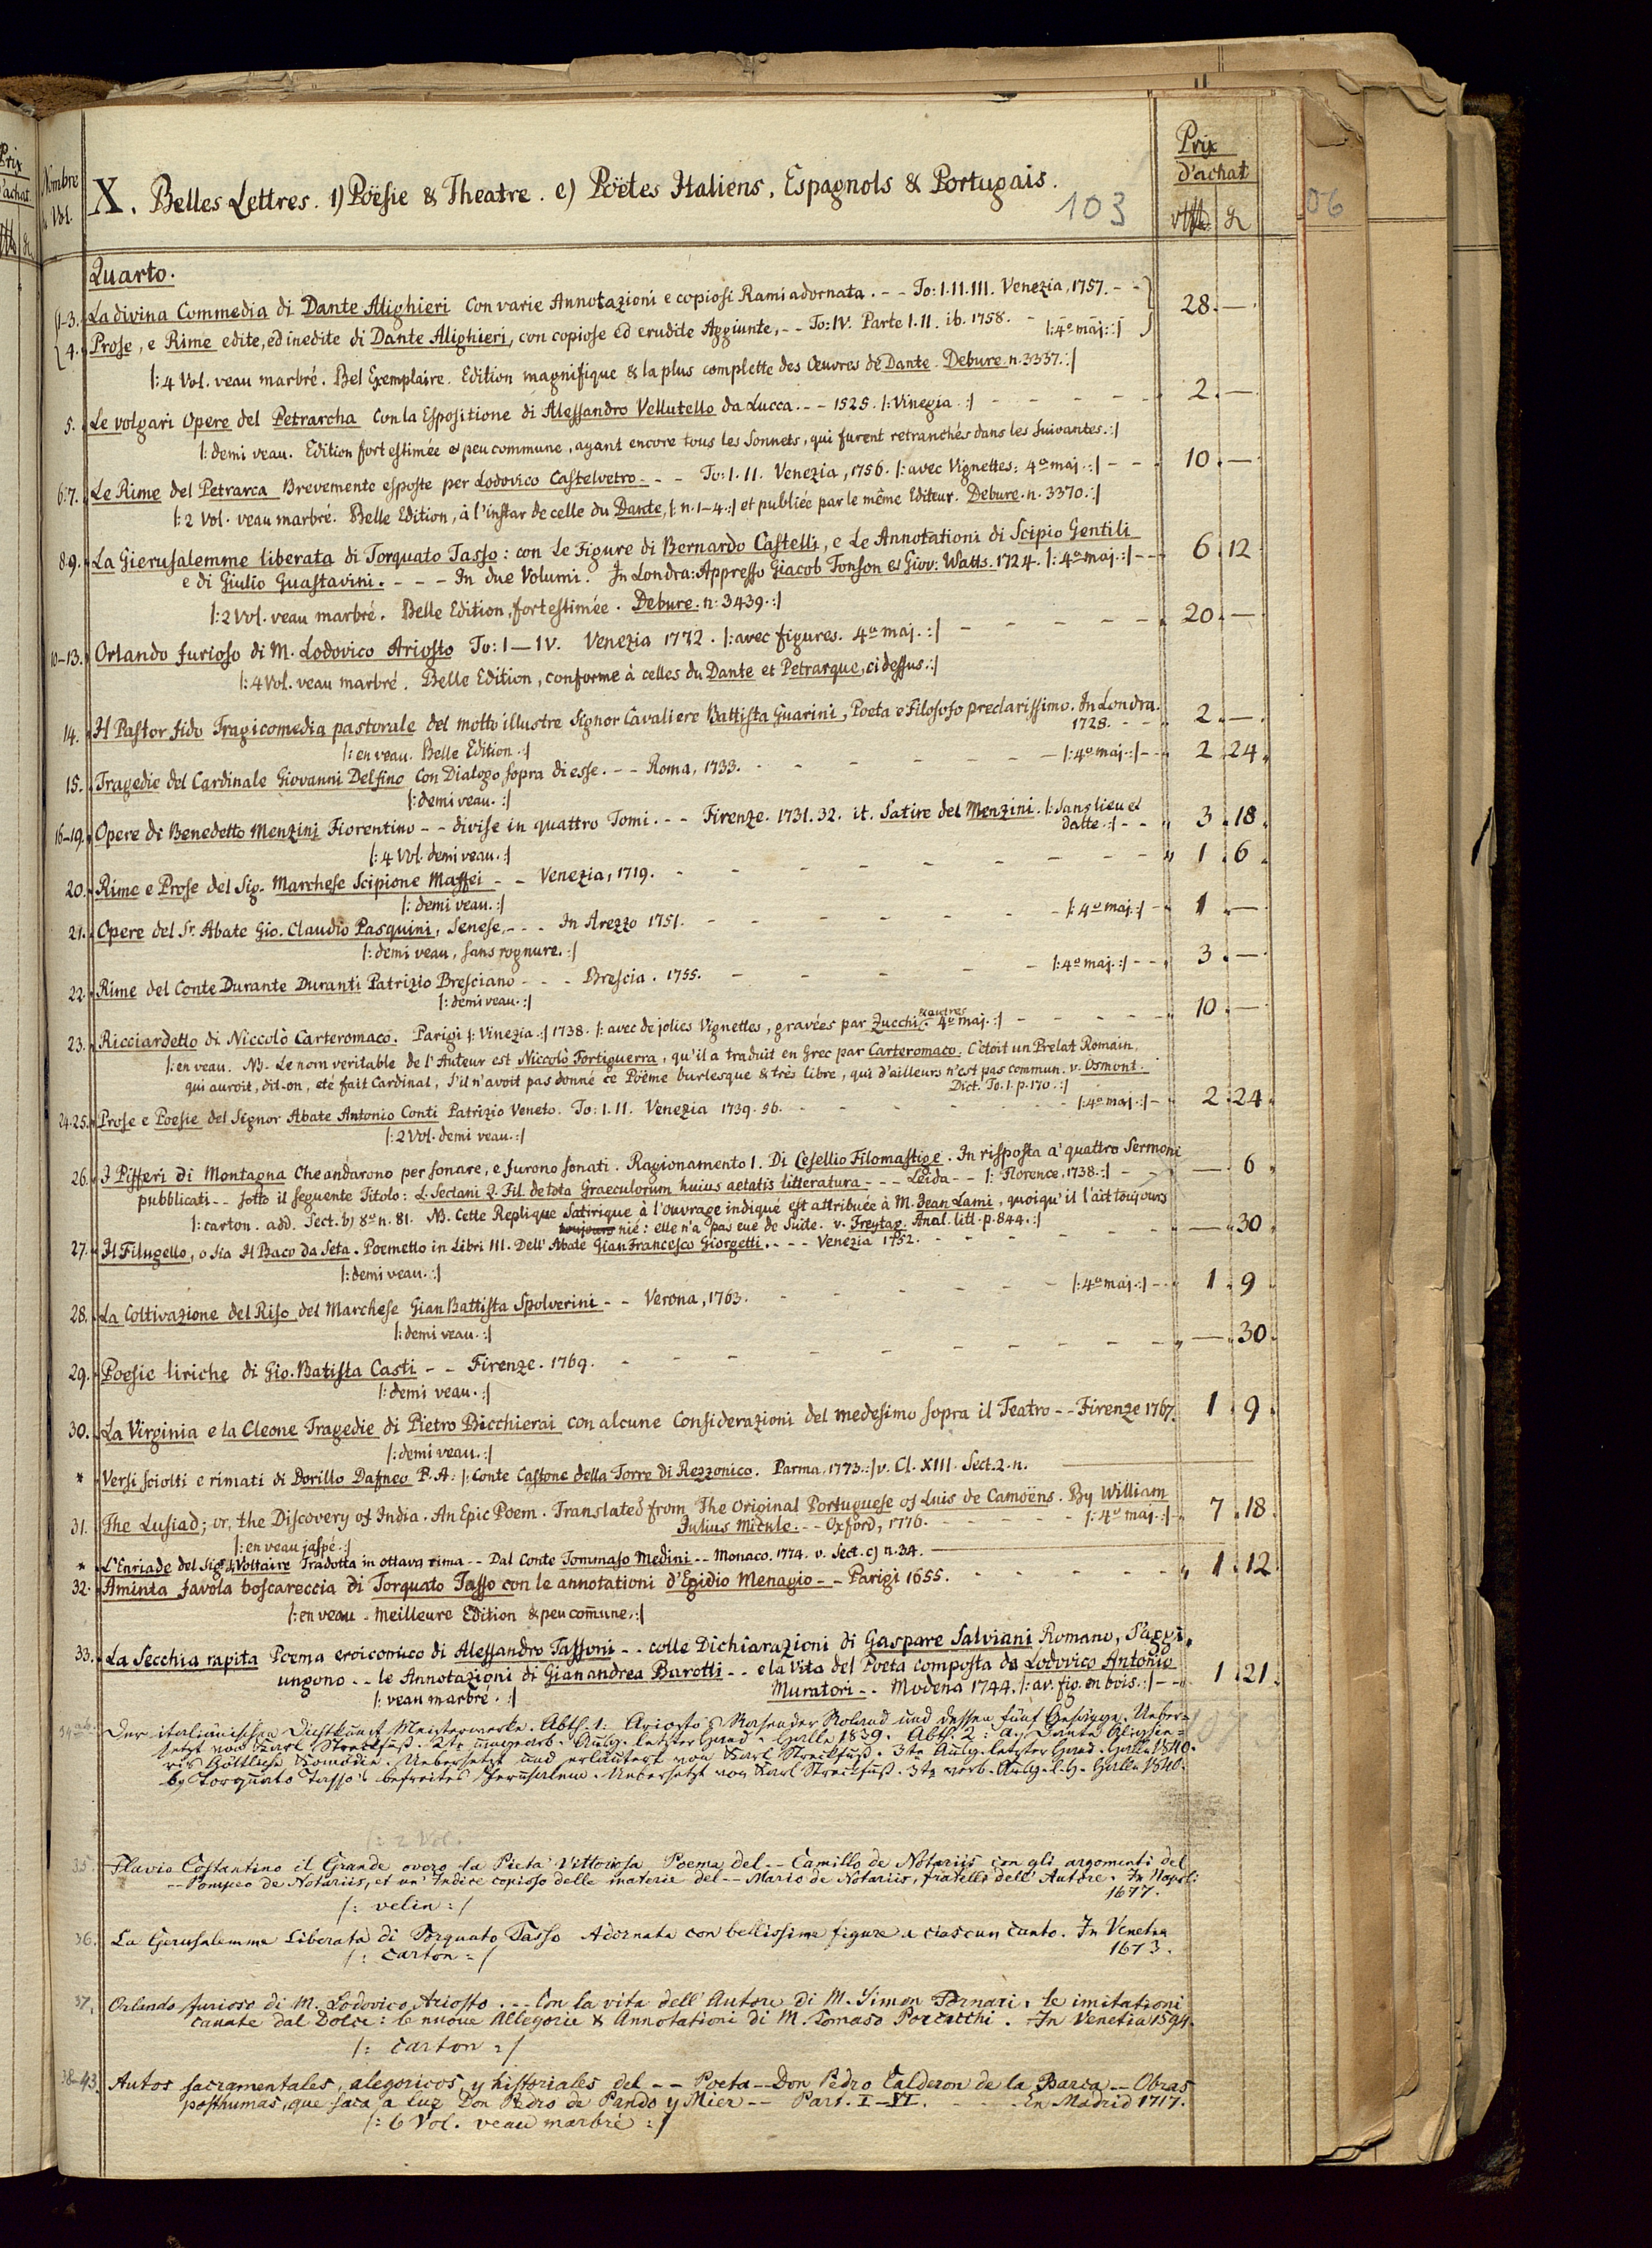 Prix
d'achat
Nombre
Vol.
X. Belles Lettres. 1) Poësie & Theatre. e) Poëtes Italiens, Espagnols & Portugais.
103
Prix
d'achat
56
Quarto.
1-3. La divina Commedia di Dante Alighieri con varie Annotazioni e copiosi Rami adornata. - - To: I. II. III. Venezia, 1757. - - 28. —
4. Prose, e Rime edite, ed inedite di Dante Alighieri, con copiose ed erudite Aggiunte, - - To: IV. Parte I. II. ib. 1758. - |: 4º maj.:|
|: 4 Vol. veau marbré. Bel Exemplaire. Edition magnifique & la plus complette des Œuvres de Dante. Debure n. 3337.:|
5. Le volgari Opere del Petrarcha con la Espositione di Alessandro Vellutello da Lucca. - - 1525. |: Vinegia.:| - - - - 2. —
|: demi veau. Edition fort estimée & peu commune, ayant encore tous les Sonnets, qui furent retranchés dans les suivantes.:|
6.7. Le Rime del Petrarca Brevemente esposte per Lodovico Castelvetro - - - To: I. II. Venezia, 1756. |: avec Vignettes: 4º maj.:| - - - 10. —
|: 2 Vol. veau marbré. Belle Edition, à l'instar de celle du Dante, |: n. 1-4.:| et publiée par le même Editeur. Debure. n. 3370.:|
8.9. La Gierusalemme liberata di Torquato Tasso: con Le Figure di Bernardo Castelli, e Le Annotationi di Scipio Gentili
e di Giulio Guastavini. - - - In due Volumi. In Londra: Appresso Giacob Tonson & Giov: Watts. 1724. |: 4º maj.:| - - 6. 12
|: 2 Vol. veau marbré. Belle Edition, fort estimée. Debure. n: 3439.:|
10-13. Orlando furioso di M. Lodovico Ariosto To: I—IV. Venezia 1772. |: avec figures. 4º maj.:| - - - - 20. —
|: 4 Vol. veau marbré. Belle Edition, conforme à celles du Dante et Petrarque, ci dessus.:|
14. Il Pastor fido Tragicomedia pastorale del molto illustre Signor Cavaliere Battista Guarini, Poeta e Filosofo preclarissimo. In Londra.
1728. - - 2. —
|: en veau. Belle Edition.:|
15. Tragedie del Cardinale Giovanni Delfino con Dialogo sopra di esse. - - Roma, 1733. - - - - - |: 4º maj.:| - - 2. 24
|: demi veau.:|
16-19. Opere di Benedetto Menzini Fiorentino - - divise in quattro Tomi. - - Firenze. 1731. 32. it. Satire del Menzini. |: Sans lieu et
datte.:| - - 3. 18
|: 4 Vol. demi veau.:|
20. Rime e Prose del Sig. Marchese Scipione Maffei - - Venezia, 1719. - - - - - - 1. 6
|: demi veau.:|
21. Opere del Sr. Abate Gio. Claudio Pasquini, Senese, - - - In Arezzo 1751. - - - - - |: 4º maj.:| - 1. —
|: demi veau, sans rognure.:|
22. Rime del Conte Durante Duranti Patrizio Bresciano - - - Brescia. 1755. - - - - - |: 4º maj.:| - - 3. —
|: demi veau.:|
23. Ricciardetto di Niccolò Carteromaco. Parigi |: Vinezia.:| 1738. |: avec de jolies Vignettes, gravées par Zucchi & autres. 4º maj.:| - - - - 10. —
|: en veau. NB. Le nom veritable de l'Auteur est Niccolò Fortiguerra, qu'il a traduit en Grec par Carteromaco. C'étoit un Prelat Romain,
qui auroit, dit-on, eté fait Cardinal, s'il n'avoit pas donné ce Poëme burlesque & très libre, qui d'ailleurs n'est pas commun. v. Osmont.
Dict. To. I. p. 170.:|
24.25. Prose e Poesie del Signor Abate Antonio Conti Patrizio Veneto. To: I. II. Venezia 1739. 56. - - - - |: 4º maj.:| - 2. 24
|: 2 Vol. demi veau.:|
26. I Pifferi di Montagna che andarono per sonare, e furono sonati. Ragionamento I. Di Cesellio Filomastige. In risposta a' quattro Sermoni
pubblicati - - sotto il seguente Titolo: L. Sectani Q. Fil. de tota Graeculorum huius aetatis litteratura - - - Leida - - |: Florence, 1738.:| - - — 6
|: carton. add. Sect. b) 8º n. 81. NB. Cette Replique Satirique à l'ouvrage indiqué est attribuée à M. Jean Lami, quoiqu'il l'ait toujours
toujours nié: elle n'a pas eue de suite. v. Freytag. Anal. litt. p. 844.:|
27. Il Filugello, o sia Il Baco da Seta. Poemetto in Libri III. Dell' Abate Gian Francesco Giorgetti. - - - Venezia 1752. - - - - — 30
|: demi veau.:|
28. La Coltivazione del Riso, del Marchese Gian Battista Spolverini - - Verona, 1763. - - - - |: 4º maj.:| - - 1. 9
|: demi veau.:|
29. Poesie liriche di Gio. Batista Casti - - Firenze. 1769. - - - - - - — 30
|: demi veau.:|
30. La Virginia e la Cleone Tragedie di Pietro Bicchierai con alcune Considerazioni del medesimo sopra il Teatro - - Firenze 1767. 1. 9
|: demi veau.:|
* Versi sciolti e rimati di Dorillo Dafneo P. A: |: Conte Castone della Torre di Rezzonico. Parma, 1773.:| v. Cl. XIII. Sect. 2. n. —
31. The Lusiad; or, the Discovery of India. An Epic Poem. Translated from The Original Portuguese of Luis de Camoëns. By William
Julius Mickle. - - Oxford, 1776. - - - - |: 4º maj.:| 7. 18
|: en veau jaspé.:|
* L'Enriade del Sigr. de Voltaire Tradotta in ottava rima - - Dal Conte Tommaso Medini - - Monaco. 1774. v. Sect. c) n. 34. —
32. Aminta favola boscareccia di Torquato Tasso con le annotationi d'Egidio Menagio - - Parigi 1655. - - - - 1. 12
|: en veau. Meilleure Edition & peu comune.:|
33. La Secchia rapita Poema eroicomico di Alessandro Tassoni - - colle Dichiarazioni di Gaspare Salviani Romano, S'aggi-
ungono - - le Annotazioni di Gianandrea Barotti - - e la Vita del Poeta composta da Lodovico Antonio
Muratori - - Modena 1744. |: av. fig. en bois.:| - - 1. 21
|: veau marbré.:|
34 a.b. Der italiänischen Dichtkunst Meisterwerke. Abth. 1: Ariosto's Rasender Roland und dessen fünf Gesänge. Ueber-
setzt von Karl Streckfuß. 2te umgearb. Ausg. letzter Hand. Halle 1839. Abth. 2: a, Dante Alighie-
ri's Göttliche Komödie. Uebersetzt und erläutert von Karl Streckfuß. 3te Ausg. letzter Hand. Halle 1840.
b, Torquato Tasso's befreites Jerusalem. Uebersetzt von Karl Streckfuß. 3te verb. Ausg. l. H. Halle 1840.
|: 2 Vol.
35. Flavio Costantino il Grande overo la Pieta Vittoriosa Poema del - - Camillo de Notariis con gli argomenti del
- - Pompeo de Notariis, et un' Indice copioso delle materie del - - Mario de Notariis, fratelli dell' Autore. In Napoli
1677.
|: velin :|
36. La Gerusalemme Liberata di Torquato Tasso Adornata con bellissime figure a ciascun Canto. In Venetia
1673.
|: carton :|
37. Orlando furioso di M. Lodovico Ariosto. - - Con la vita dell' Autore di M. Simon Fornari. le imitationi
cavate dal Dolce: le nuove Allegorie & Annotationi di M. Tomaso Porcacchi. In Venetia 1594.
|: carton :|
38-43. Autos sacramentales, alegoricos, y historiales del - - Poeta - - Don Pedro Calderon de la Barca - - Obras
posthumas, que saca a luz Don Pedro de Pando y Mier - - Part. I-VI. - - - En Madrid 1717.
|: 6 Vol. veau marbré :|